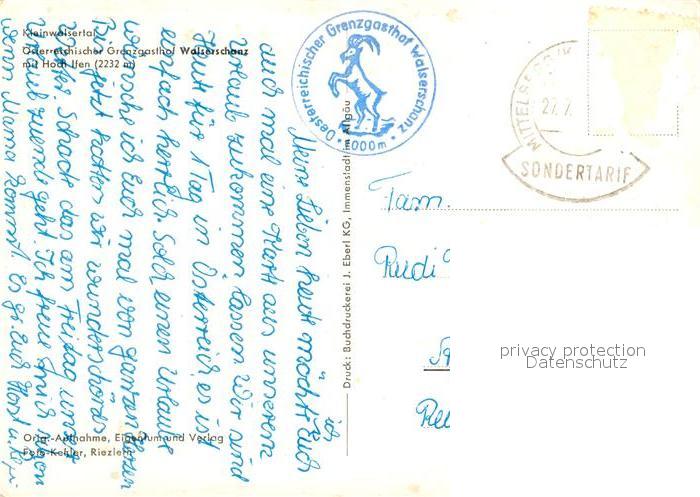 Kleinwalsertal
Österreichischer Grenzgasthof Walserschanz
mit Hoch Ifen (2232 m)
Oesterreichischer Grenzgasthof Walserschanz
1000 m
MITTELBERG
27.7.
SONDERTARIF
Meine Lieben heute möchte ich Euch
auch mal eine Karte aus unserem
Urlaub zukommen lassen. Wir sind
Heut für 1 Tag in Österreich, es ist
einfach herrlich. Solch einen Urlaub
wünsche ich Euch mal von ganzem Herzen
Bis jetzt hatten wir wunderschönes
Wetter. Schade das am Freitag unser
Urlaub zuende geht. Ich freue mich schon
wenn Mama kommt. Es grüßt Euch Horst u.
Fam.
Rudi
privacy protection
Datenschutz
Druck: Buchdruckerei J. Eberl KG, Immenstadt im Allgäu
Orig.-Aufnahme, Eigentum und Verlag
Foto-Kessler, Riezlern